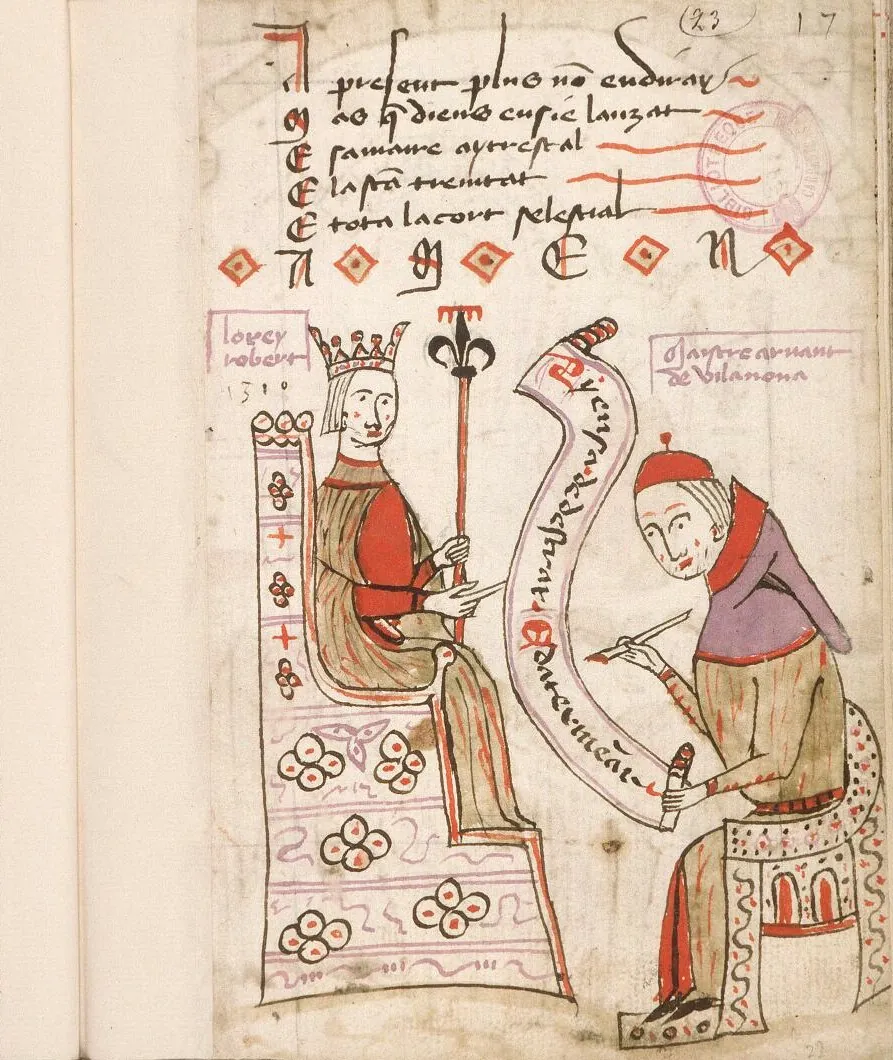 23 17
A present plus nō en diray
Mas q̄ dieus ensie lauzat
E sa maire aytrestal
E la scā trenitat
E tota la cort selestial
A M E N
lo rey
robert
1310
Maistre arnaut
de vilanova
BIBLIOTHEQUE